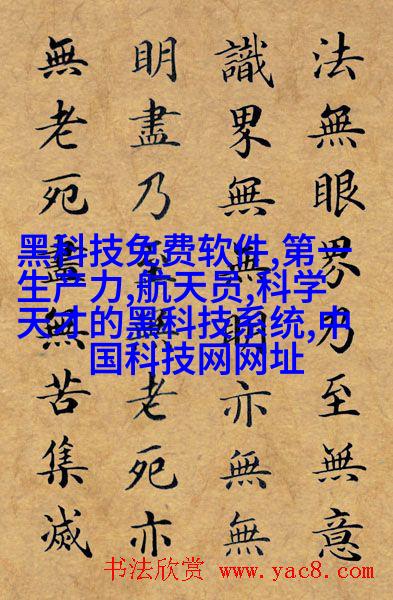 法無眼界乃至無意
識界無無明亦無無
明盡乃至無老死亦
無老死盡無苦集滅
黑科技免费软件,第一
生产力,航天员,科学
天才的黑科技系统,中
国科技网网址
书法欣赏 www.yac8.com